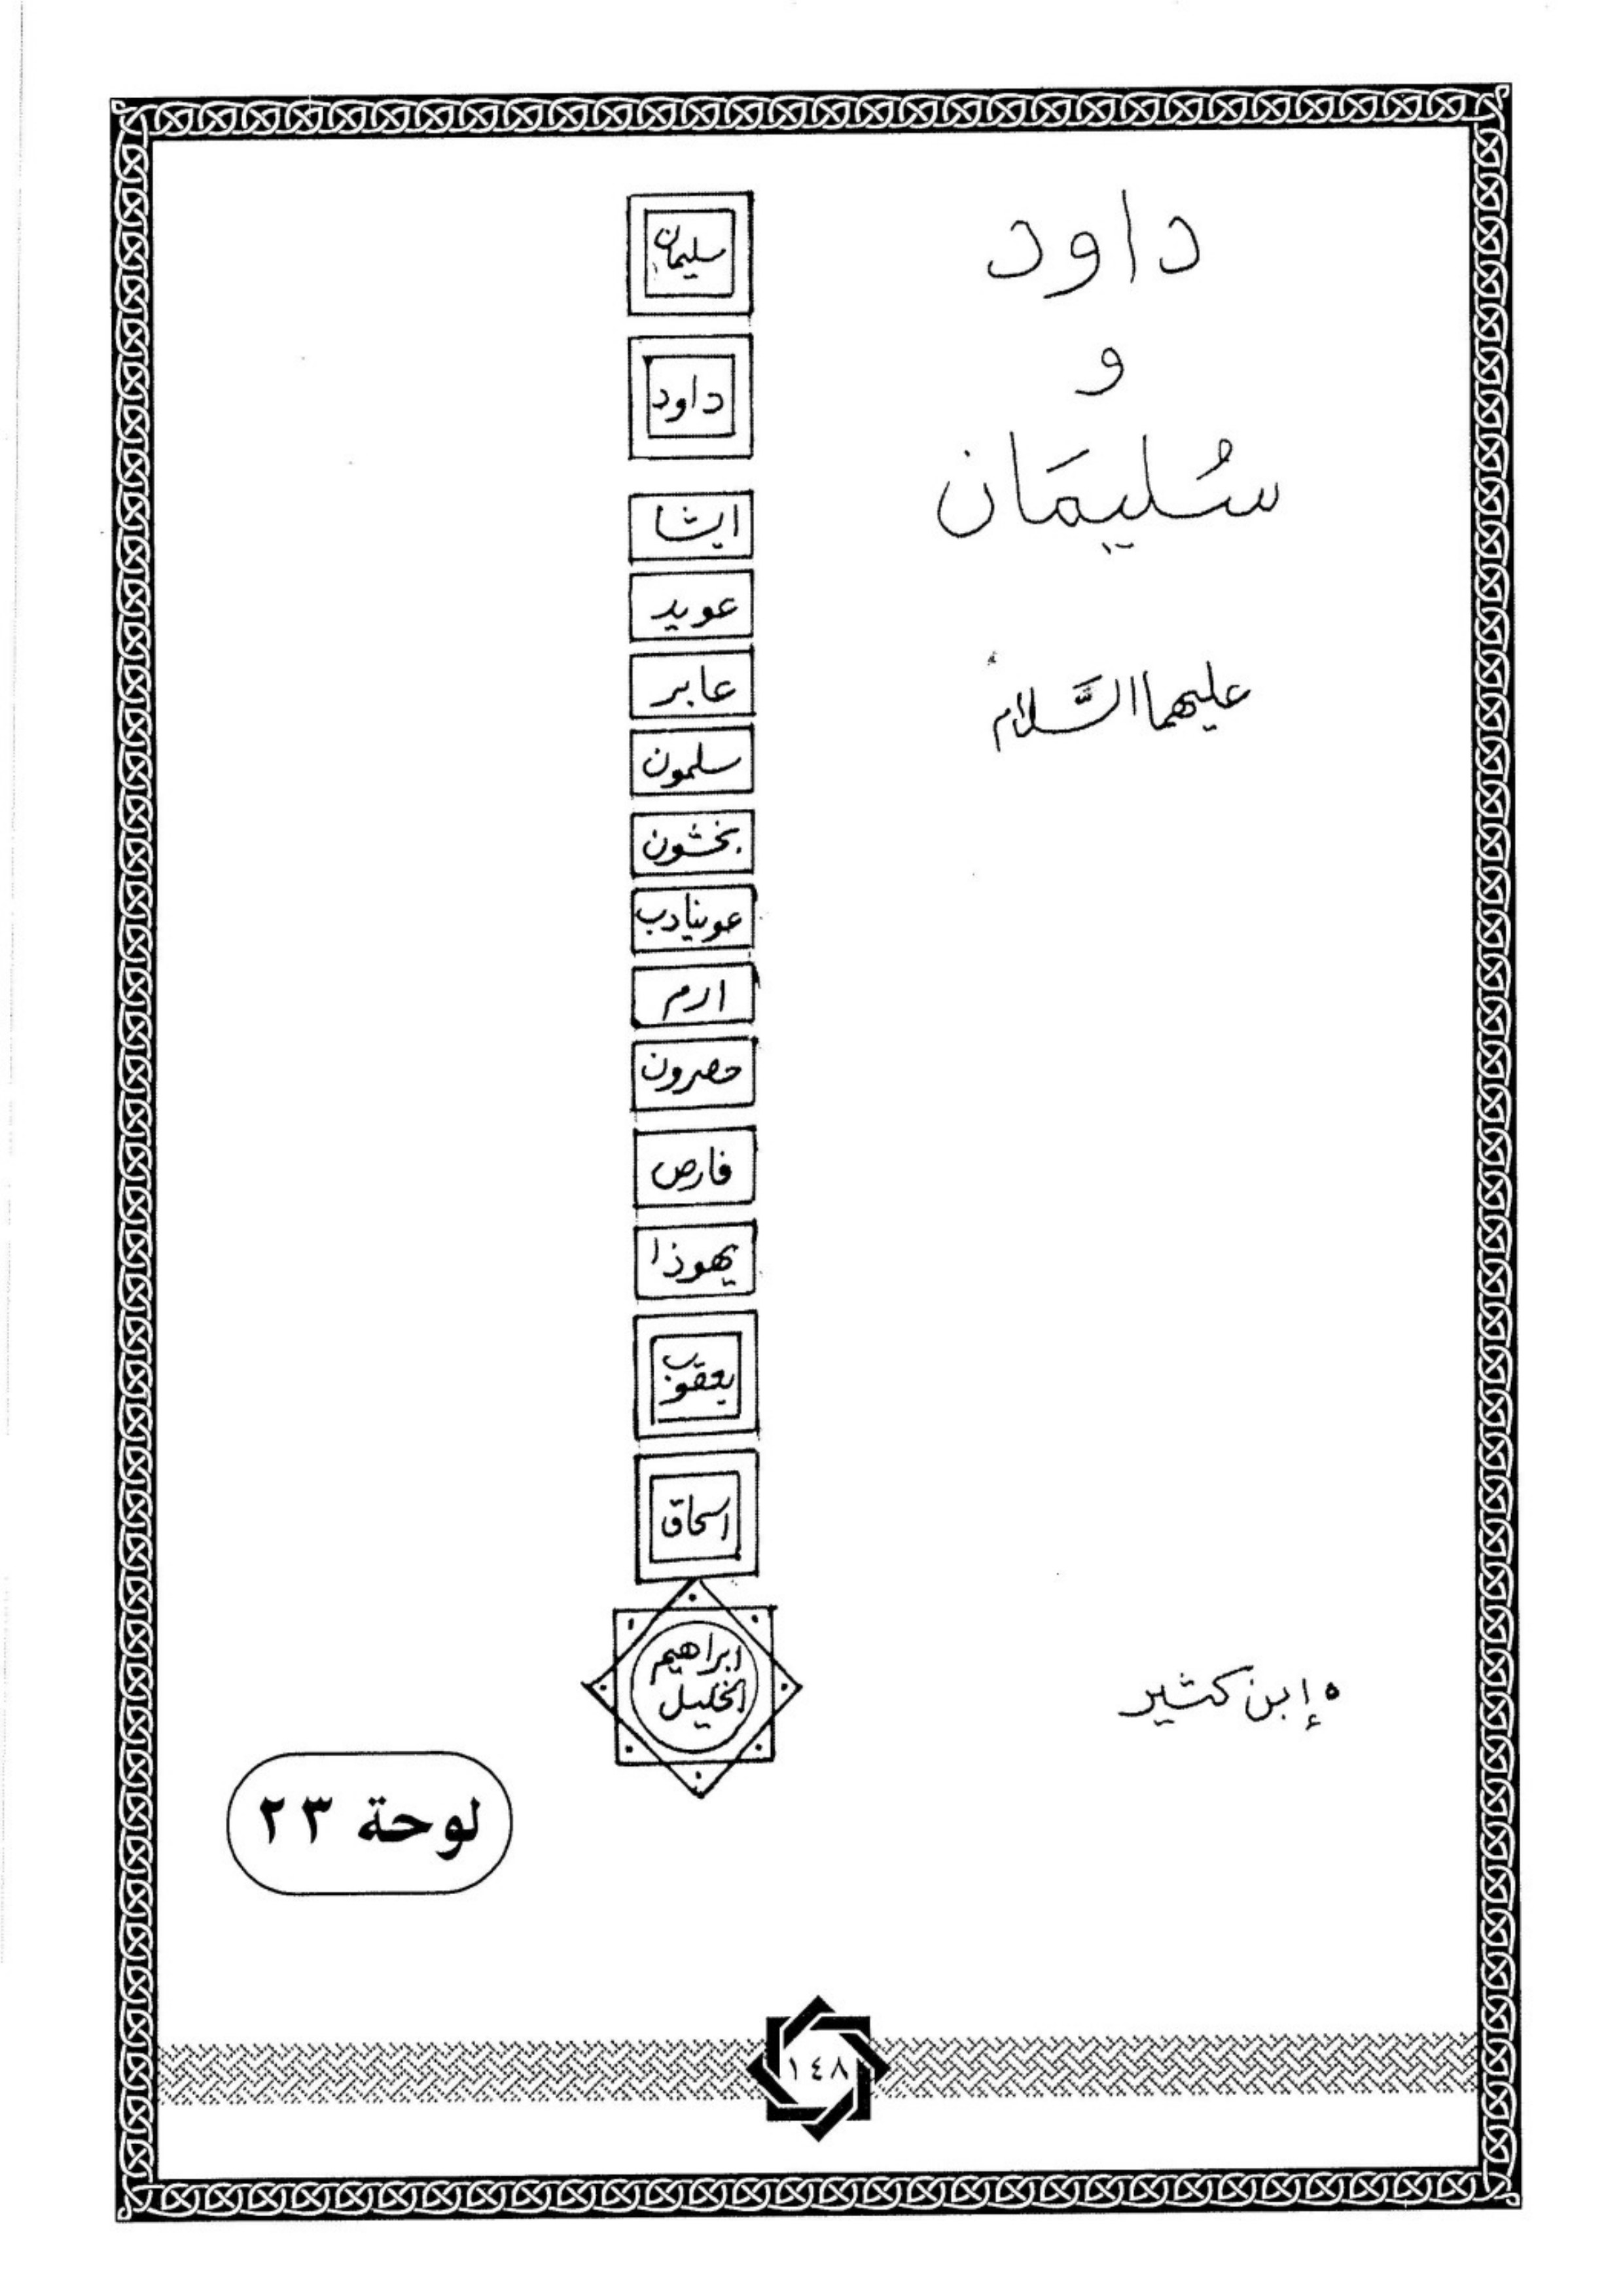 داود
و
سُليمَان
عليهما السَّلام
سليمان
داود
ايشا
عويد
عابر
سلمون
بخشون
عوينادب
ارم
حصرون
فارص
يهوذا
يعقوب
اسحاق
ابراهيم
الخليل
ه إبن كثير
لوحة ٢٣
١٤٨